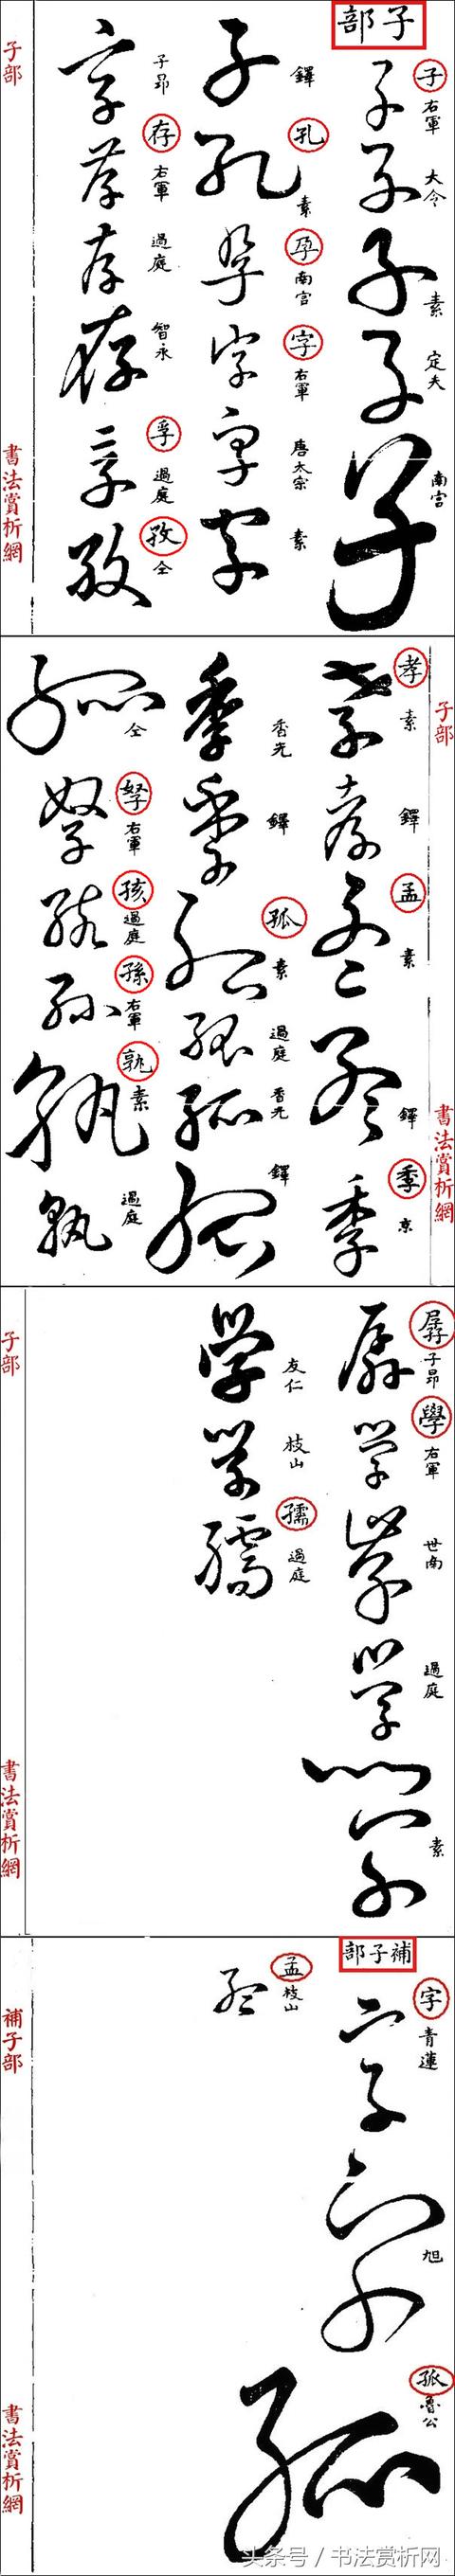 子部
子 右軍
子 大令
子 素
子 定夫
子 南宫
子 鐸
孔 素
孕 南宫
字 右軍
字 唐太宗
字 素
字 子昂
存 右軍
存 過庭
存 智永
孚 過庭
孜 仝
子部
書法賞析網
孝 素
孝 鐸
孟 素
孟 鐸
季 京
季 香光
季 鐸
孤 素
孤 過庭
孤 香光
孤 鐸
孤 仝
孥 右軍
孩 過庭
孫 右軍
孰 素
孰 過庭
子部
書法賞析網
孱 子昂
學 右軍
學 世南
學 過庭
學 素
學 友仁
學 枝山
孺 過庭
子部
書法賞析網
補子部
字 青蓮
字 旭
孤 魯公
孟 枝山
補子部
書法賞析網
头条号 / 书法赏析网